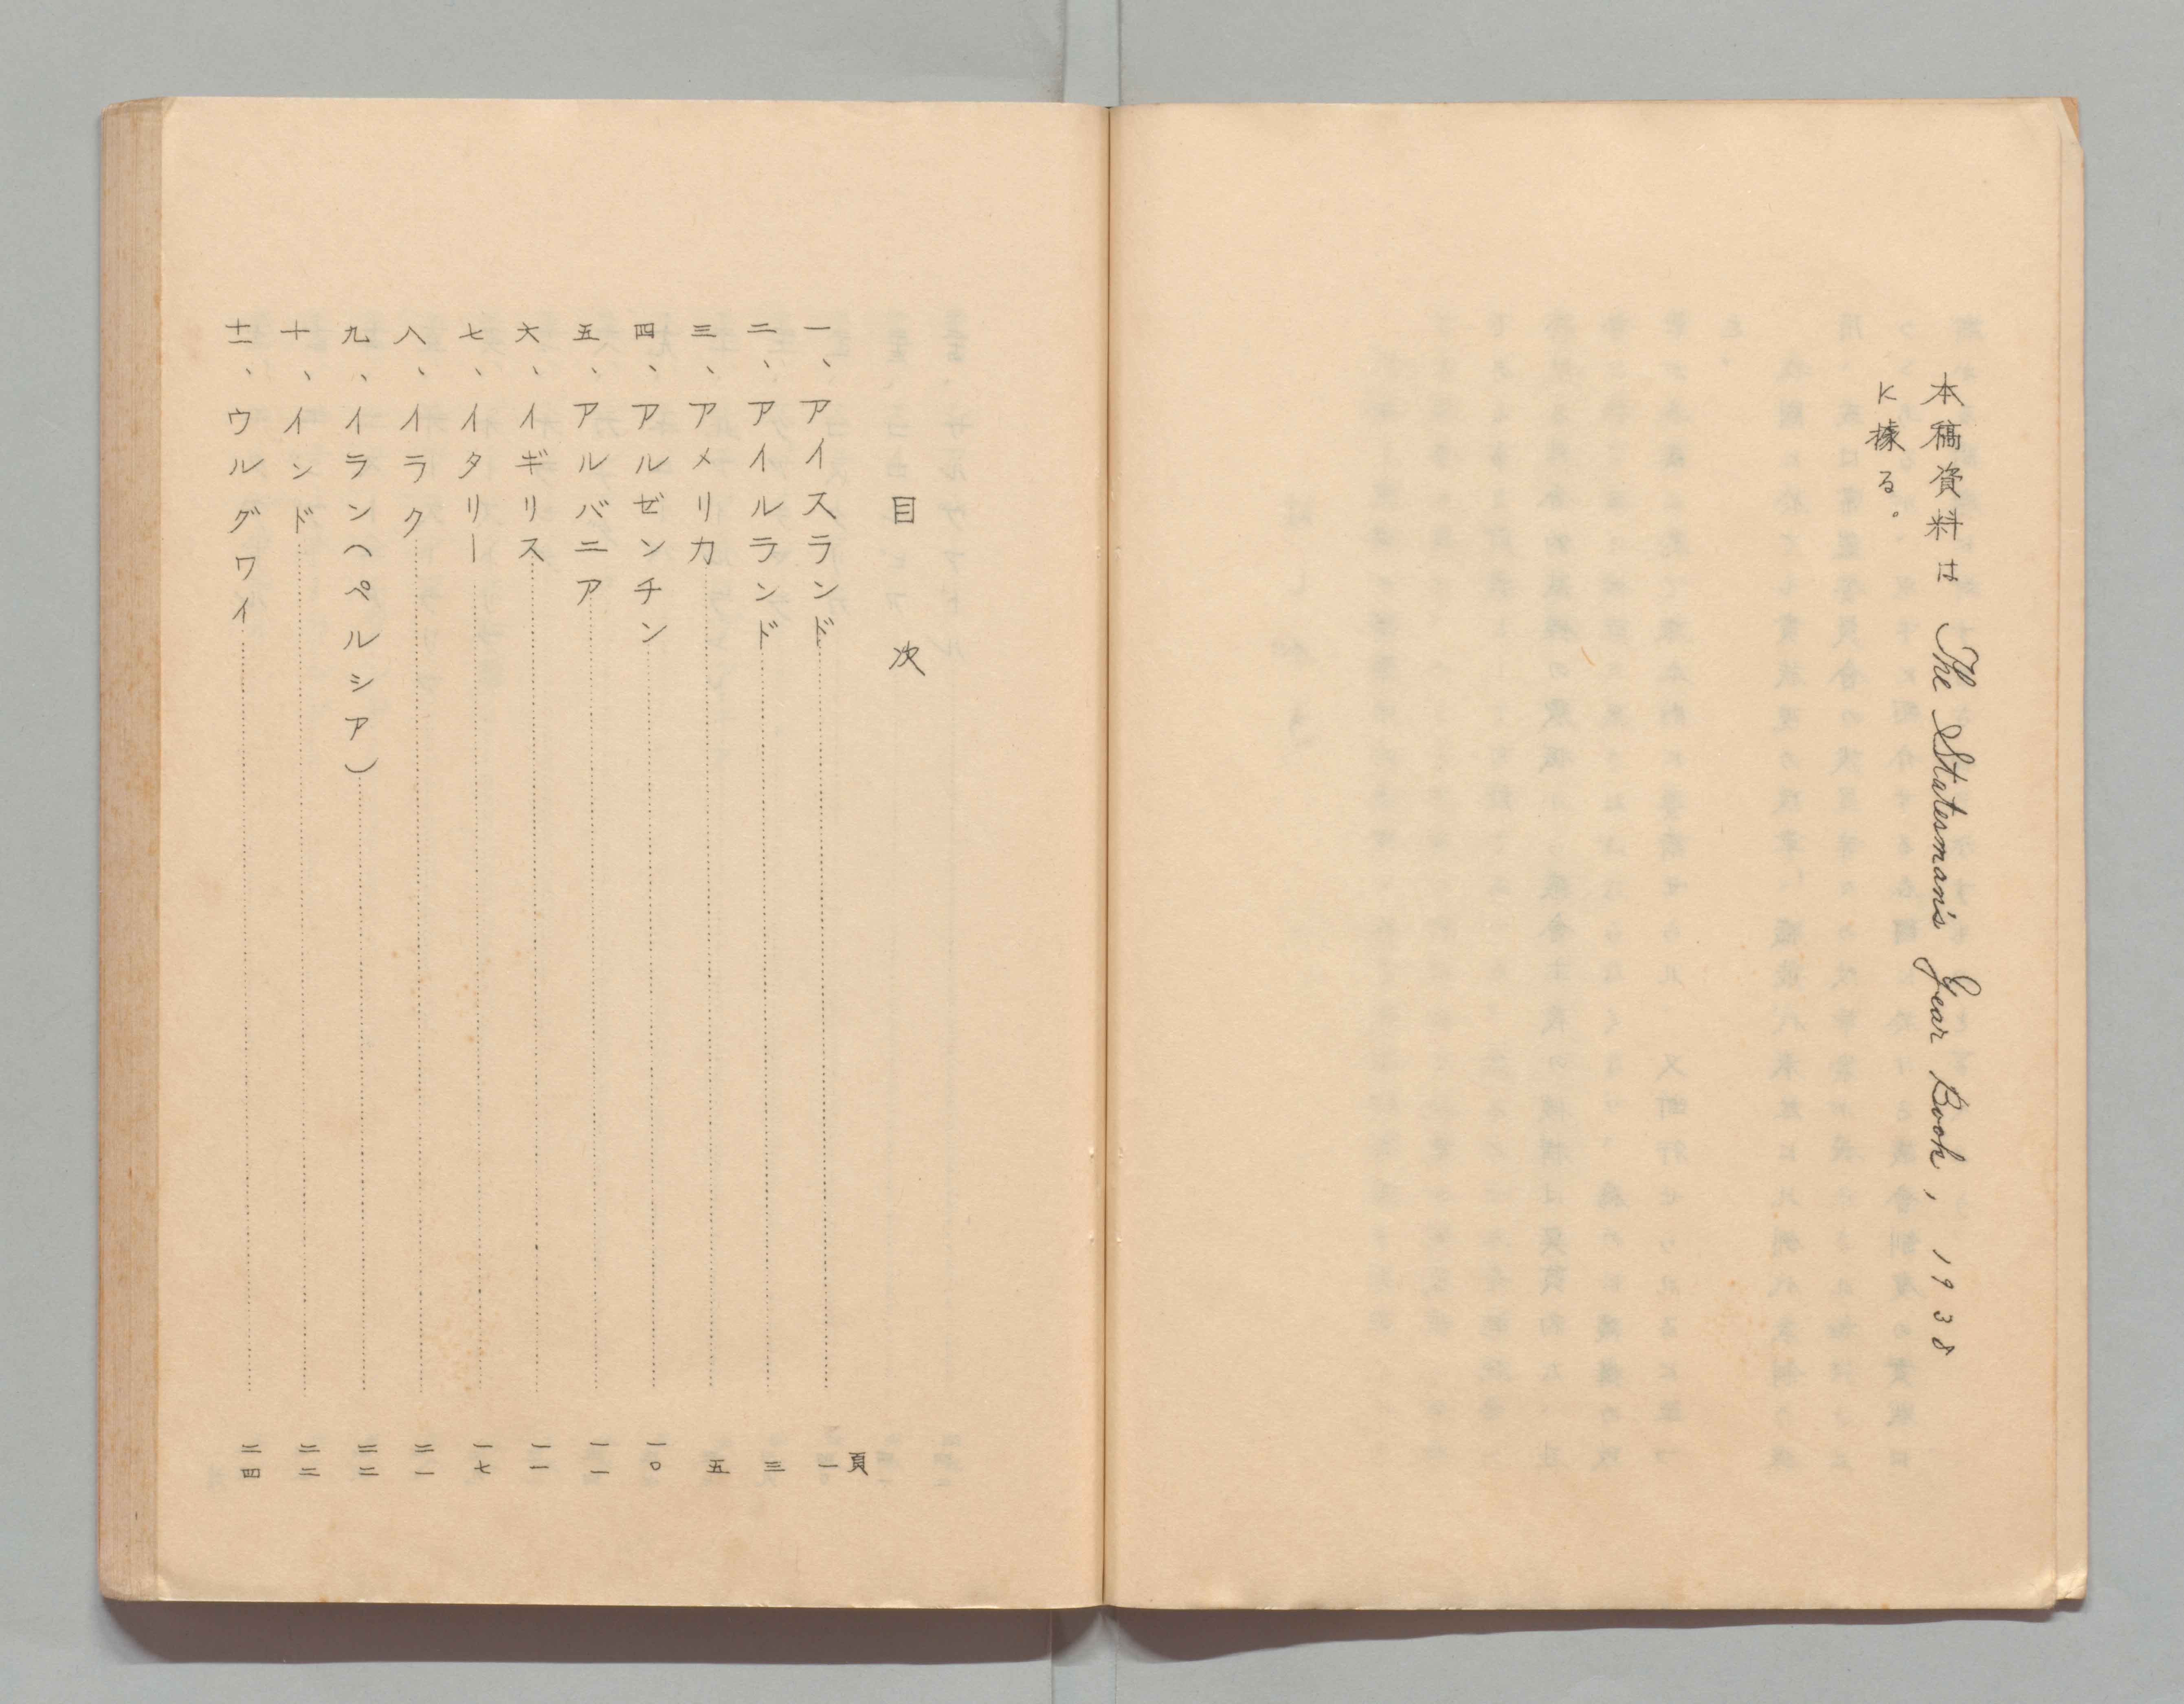 本稿資料は The Statesman's Year Book, 1938
に據る。
目次
頁
一、アイスランド……一
二、アイルランド……三
三、アメリカ……五
四、アルゼンチン……一〇
五、アルバニア……一一
六、イギリス……一一
七、イタリー……一七
八、イラク……二一
九、イラン(ペルシア)……二二
十、インド……二二
十一、ウルグワイ……二四